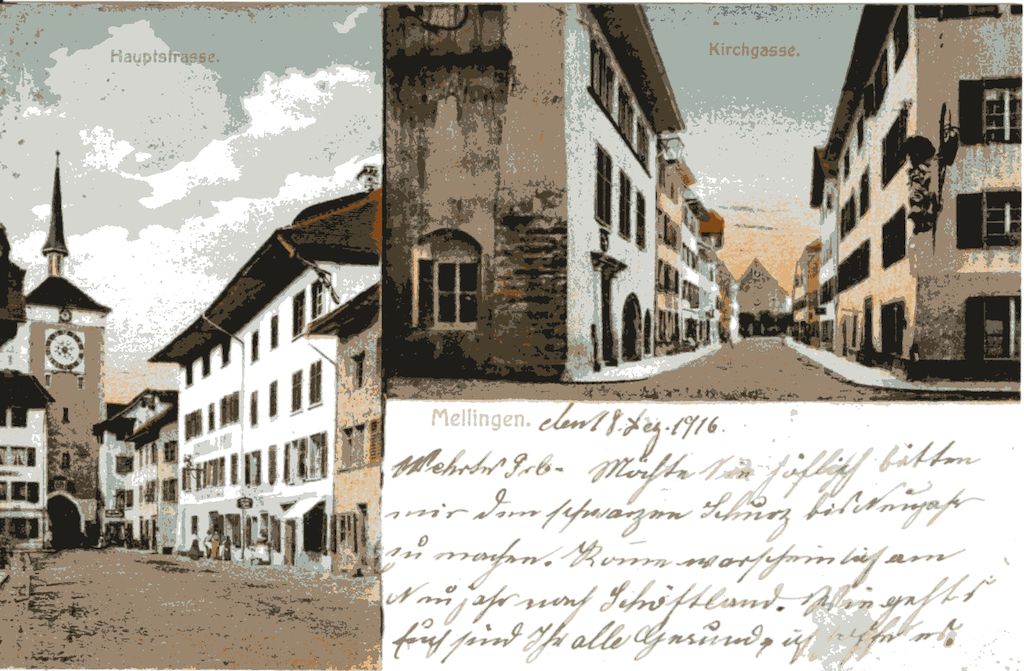 Hauptstrasse.
Kirchgasse.
Mellingen. den 18. Dez. 1916.
Möchte Sie höflich bitten
mir den schwarzen Schurz bis Neujahr
zu machen. Kome warscheinlich am
Neujahr nach Schöftland. Wie geht's
Euch sind Ihr alle Gesund, ich hoffe es.